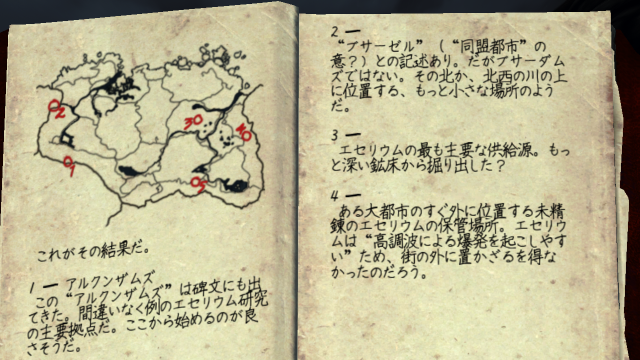 2
3
4
1
5
これがその結果だ。
1 ー アルクンザムズ
この“アルクンザムズ”は碑文にも出
てきた。間違いなく例のエセリウム研究
の主要拠点だ。ここから始めるのが良
さそうだ。
2 ー
“ブサーゼル”（“同盟都市”の
意？）との記述あり。だがブサーダム
ズではない。その北か、北西の川の上
に位置する、もっと小さな場所のよう
だ。
3 ー
エセリウムの最も主要な供給源。もっ
と深い鉱床から掘り出した？
4 ー
ある大都市のすぐ外に位置する未精
錬のエセリウムの保管場所。エセリウ
ムは“高調波による爆発を起こしやす
い”ため、街の外に置かざるを得な
かったのだろう。